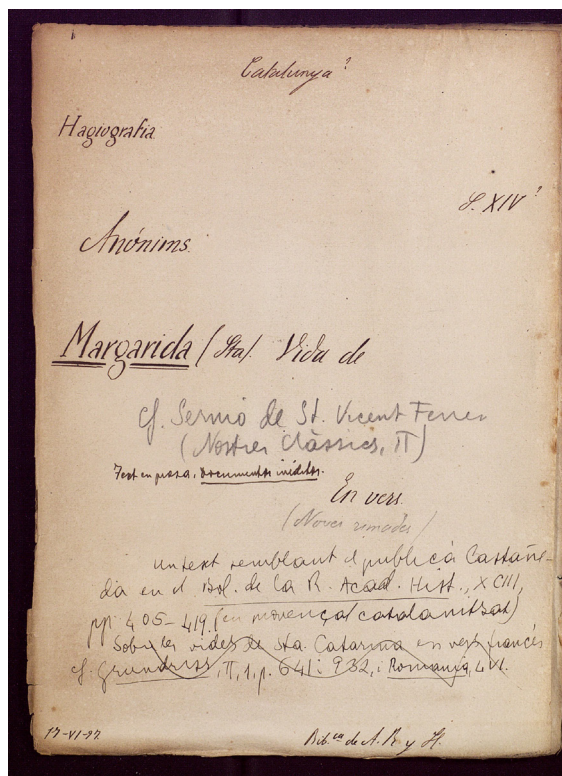 Catalunya?
Hagiografia
S. XIV?
Anónims.
Margarida (Sta). Vida de
cf. Sermó de St. Vicent Ferrer
(Nostres Clàssics, II)
Text en prosa, Documentos inéditos.
En vers.
(Noves rimades)
un text semblant el publicà Castañe-
da en el Bol. de la R. Acad. Hist., XCIII,
pp. 405-419. (en provençal catalanitzat)
Sobre les vides de Sta. Catarina en vers francés
cf. Grundriss, II, 1, p. 641 i 932, i Romania, LVI.
Bib.ca de A. R y H.